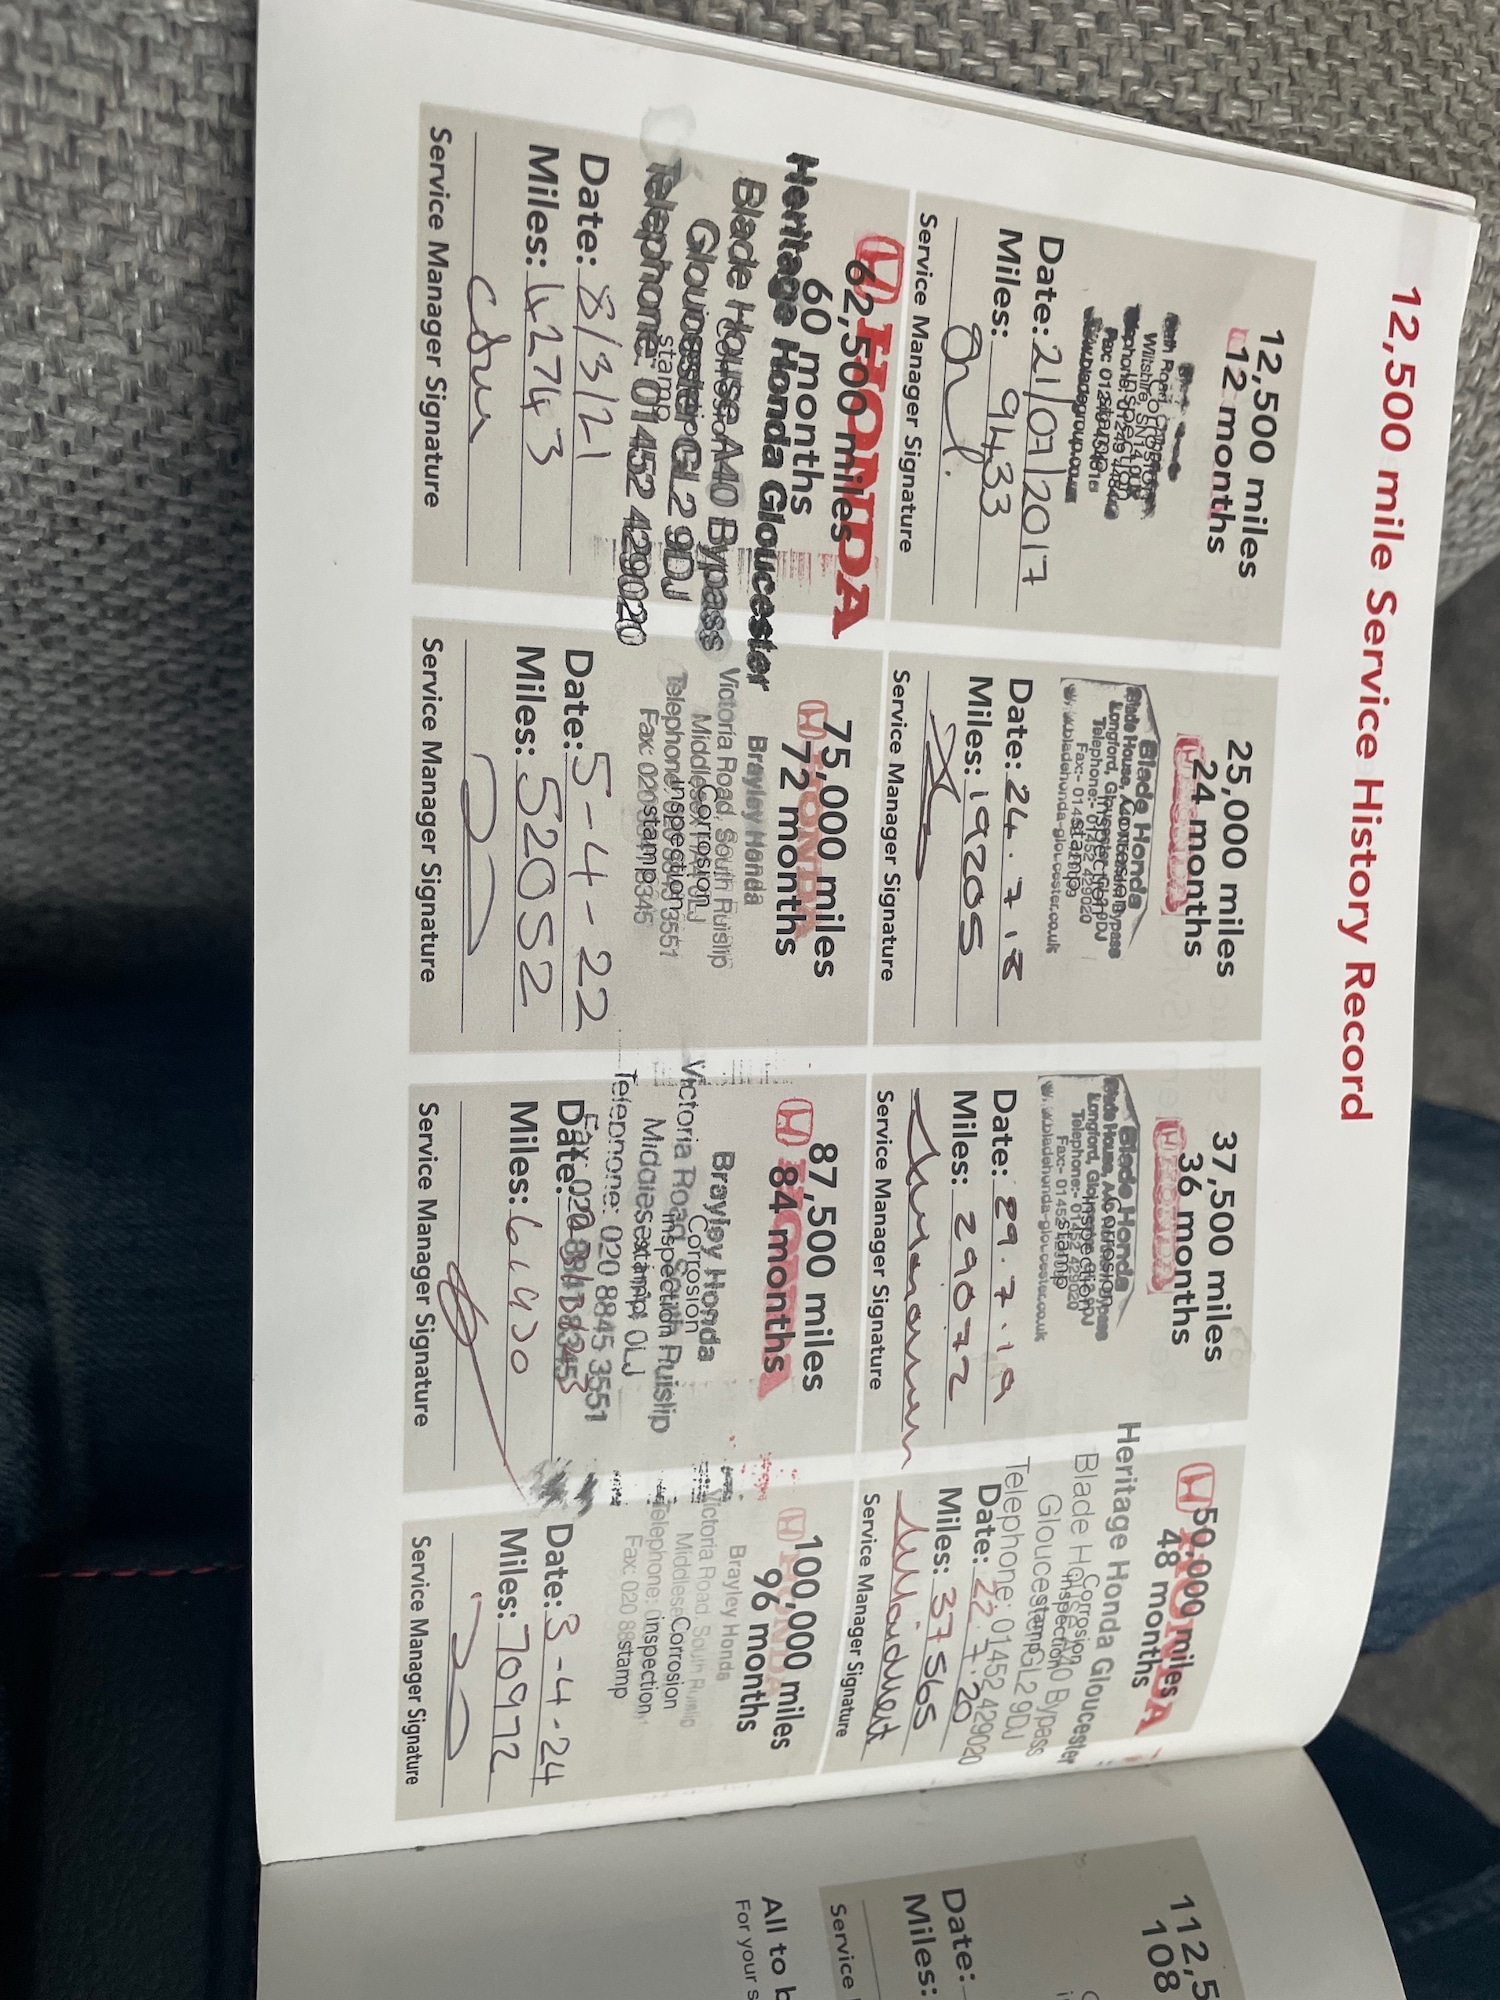 12,500 mile Service History Record
12,500 miles
12 months
Corrosion
inspection
stamp
Date: 21/07/2017
Miles: 9433
Service Manager Signature
25,000 miles
24 months
Blade Honda
Blade House, A40 Bypass
Longford, Gloucester GL2 9DJ
Telephone:- 01452 429020
www.bladehonda-gloucester.co.uk
Corrosion
inspection
stamp
Date: 24.7.18
Miles: 19205
Service Manager Signature
37,500 miles
36 months
Blade Honda
Blade House, A40 Bypass
Longford, Gloucester GL2 9DJ
Telephone:- 01452 429020
www.bladehonda-gloucester.co.uk
Corrosion
inspection
stamp
Date: 29.7.19
Miles: 29072
Service Manager Signature
HONDA
50,000 miles
48 months
Heritage Honda Gloucester
Blade House A40 Bypass
Gloucester GL2 9DJ
Telephone: 01452 429020
Corrosion
inspection
stamp
Date: 22.7.20
Miles: 37565
Service Manager Signature
HONDA
62,500 miles
60 months
Heritage Honda Gloucester
Blade House A40 Bypass
Gloucester GL2 9DJ
Telephone: 01452 429020
Corrosion
inspection
stamp
Date: 8/3/21
Miles: 42743
Service Manager Signature
HONDA
75,000 miles
72 months
Brayley Honda
Victoria Road, South Ruislip
Middlesex 0LJ
Telephone: 020 8845 3551
Fax: 020 8841 8345
Corrosion
inspection
stamp
Date: 5-4-22
Miles: 52052
Service Manager Signature
HONDA
87,500 miles
84 months
Brayley Honda
Victoria Road, South Ruislip
Middlesex 0LJ
Telephone: 020 8845 3551
Fax: 020 8841 8345
Corrosion
inspection
stamp
Date:
Miles: 61430
Service Manager Signature
HONDA
100,000 miles
96 months
Brayley Honda
Victoria Road, South Ruislip
Middlesex
Telephone:
Fax: 020 88
Corrosion
inspection
stamp
Date: 3-4-24
Miles: 70972
Service Manager Signature
112,5
108
Date:
Miles:
Service
All to b
For your s